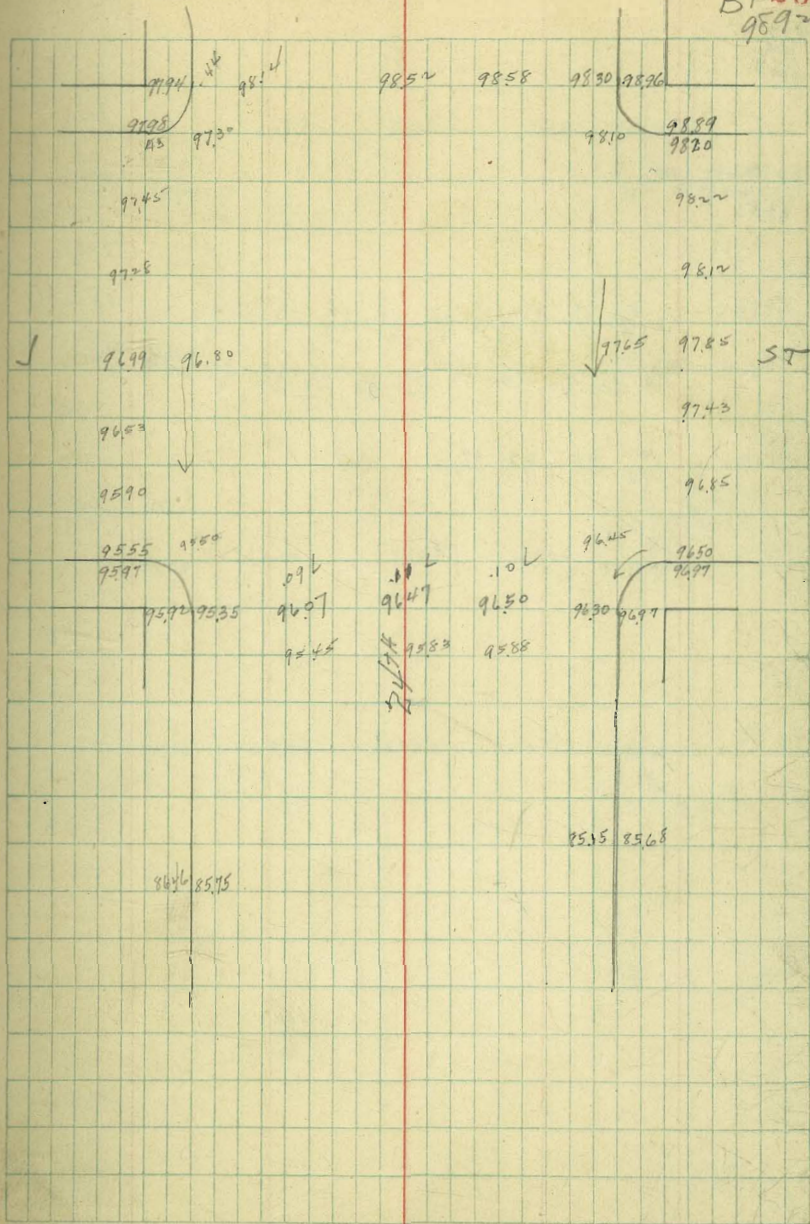 97.94 .44 98.14 98.52 98.58 98.30 98.96
97.98 97.30 98.10 98.89
98.20
97.45 98.22
97.28 98.12
J 96.99 96.80 97.65 97.85 ST
96.53 97.43
95.90 96.85
95.55 95.50 96.45 96.50
95.97 .09 .10 96.97
95.92 95.35 96.07 96.47 96.50 96.30 96.97
95.45 95.83 95.88
85.15 85.68
86.46 85.75